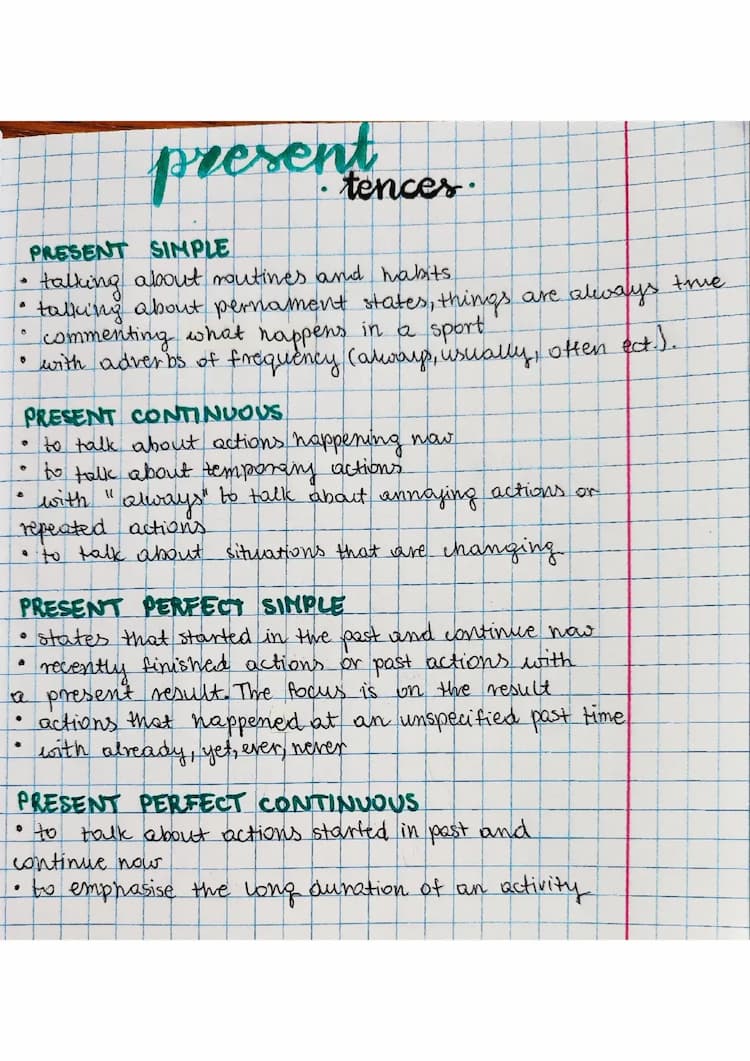 present
• tences •
PRESENT SIMPLE
• talking about routines and habits
• talking about pernament states, things are always true
• commenting what happens in a sport
• with adverbs of frequency (always, usually, often ect.).
PRESENT CONTINUOUS
• to talk about actions happening now
• to talk about temporary actions
• with "always" to talk about annoying actions or
repeated actions
• to talk about situations that are changing
PRESENT PERFECT SIMPLE
• states that started in the past and continue now
• recently finished actions or past actions with
a present result. The focus is on the result
• actions that happened at an unspecified past time
• with already, yet, ever, never
PRESENT PERFECT CONTINUOUS
• to talk about actions started in past and
continue now
• to emphasise the long duration of an activity